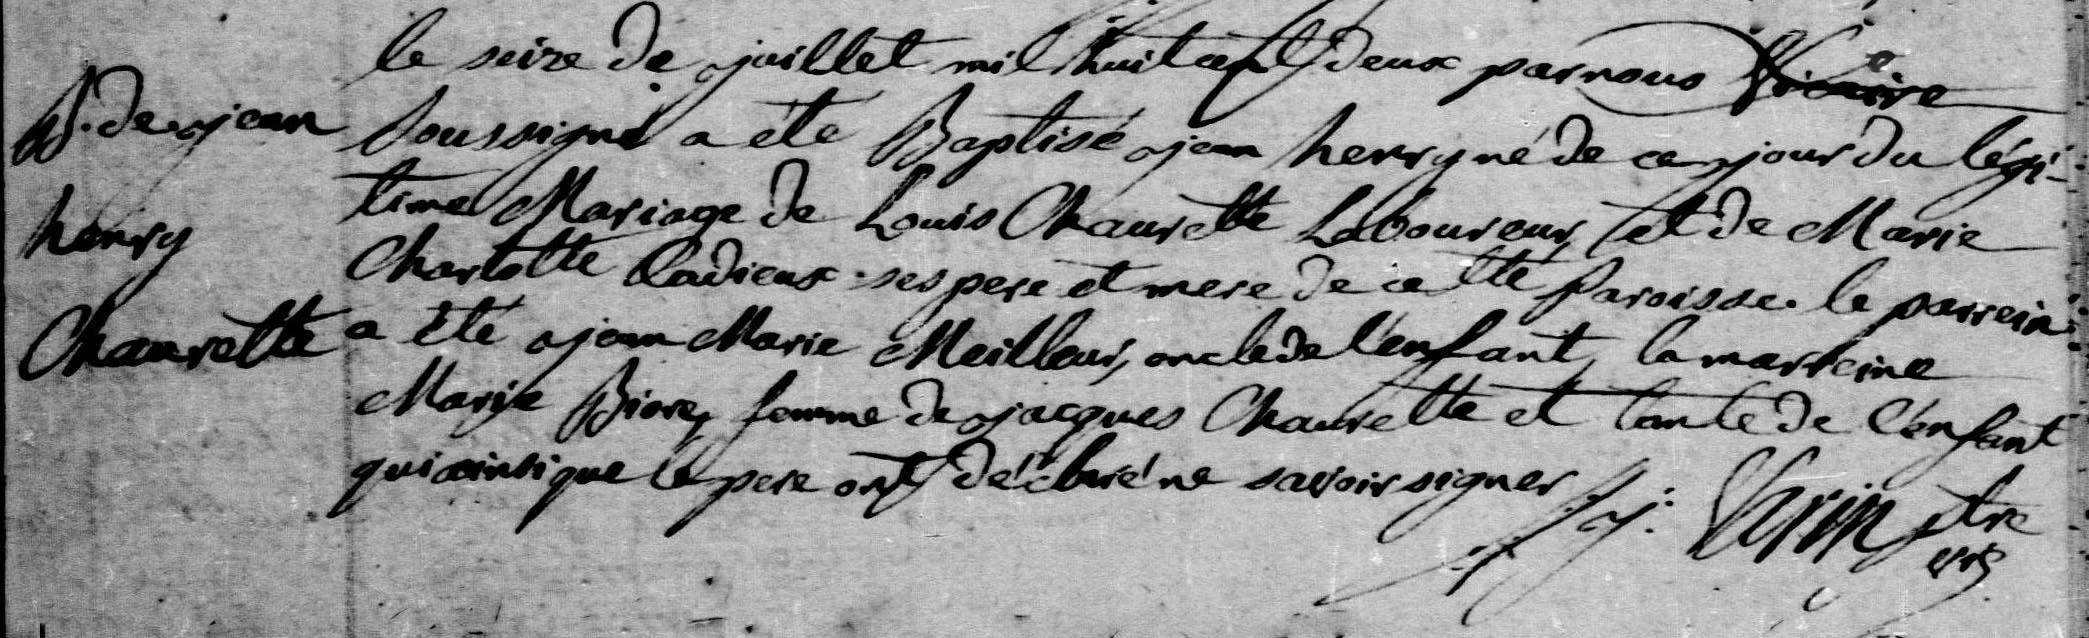 B. de jean
henry
Chaurette
le seize de juillet mil huit cent deux par nous Vicaire
soussigné a été Baptisé jean henry né de ce jour du légi-
time Mariage de Louis Chaurette Laboureur et de Marie
Charlotte Ladieux ses pere et mere de cette Paroisse. le parrein
a été jean Marie Meilleur, oncle de l'enfant, la marreine
Marie femme de jacques Chaurette et tante de l'enfant
qui ainsi que le pere ont déclaré ne savoir signer
ptre